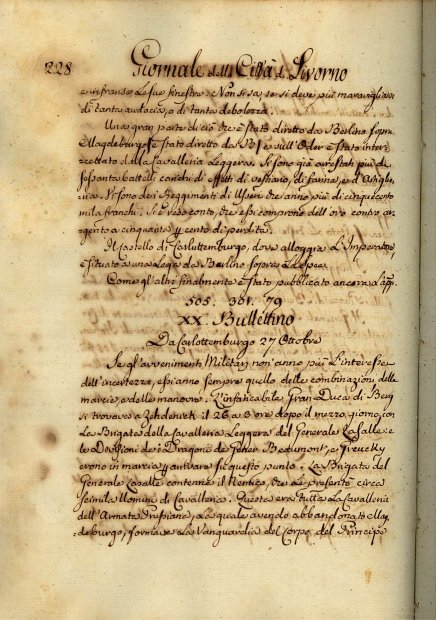 228 Giornale della Città di Livorno
e infranse le sue finestre. Non si sa, se si deve più maravigliarsi
di tanta audacia, o di tanta debolezza.
Una gran parte di ciò che è stato diretto da Berlino sopra
Magdeburgo, è stato diretto da sull'Oder è stato inter-
rettato dalla Cavalleria Leggera. Si sono già arrestati più di
sessanta battelli carichi di effetti di vestiario, di farina, e d'Artiglie-
ria. Vi sono dei Reggimenti di Usseri che anno più di cinquecento
mila franchi. Si è reso conto, che essi comprono dell'oro contro ar-
gento a cinquanta per cento di perdita.
Il Castello di Carlottemburgo, dove alloggia L'Imperatore,
è situato a una Lega da Berlino sopra La Spree
Come gl'altri finalmente è stato pubblicato ancora
505. 301. 79
XX. Bullettino
Da Carlottemburgo 27 Ottobre
Se gl'avvenimenti Militari non anno più l'interesse
dell'incertezza, essi anno sempre quello delle combinazioni delle
marcie, e delle manovre. L'infaticabile Gran Duca di Berg
si trovava a Zehdenick il 26 a 3 ore dopo il mezzo giorno, con
La Brigata della Cavalleria Leggera del Generale LaSalle: e
le Divisioni de' Dragoni de' Gener. Beaumont, e Grouchy
erono in marcia per arrivare su questo punto. La Brigata del
Generale Lasalle contenne il Nemico, che Le presentò circa
seimila Uomini di Cavalleria. Questa era tutta La Cavalleria
dell'Armata Prussiana, La quale avendo abbandonato Mag-
deburgo, formava La Vanguardia del Corpo del Principe